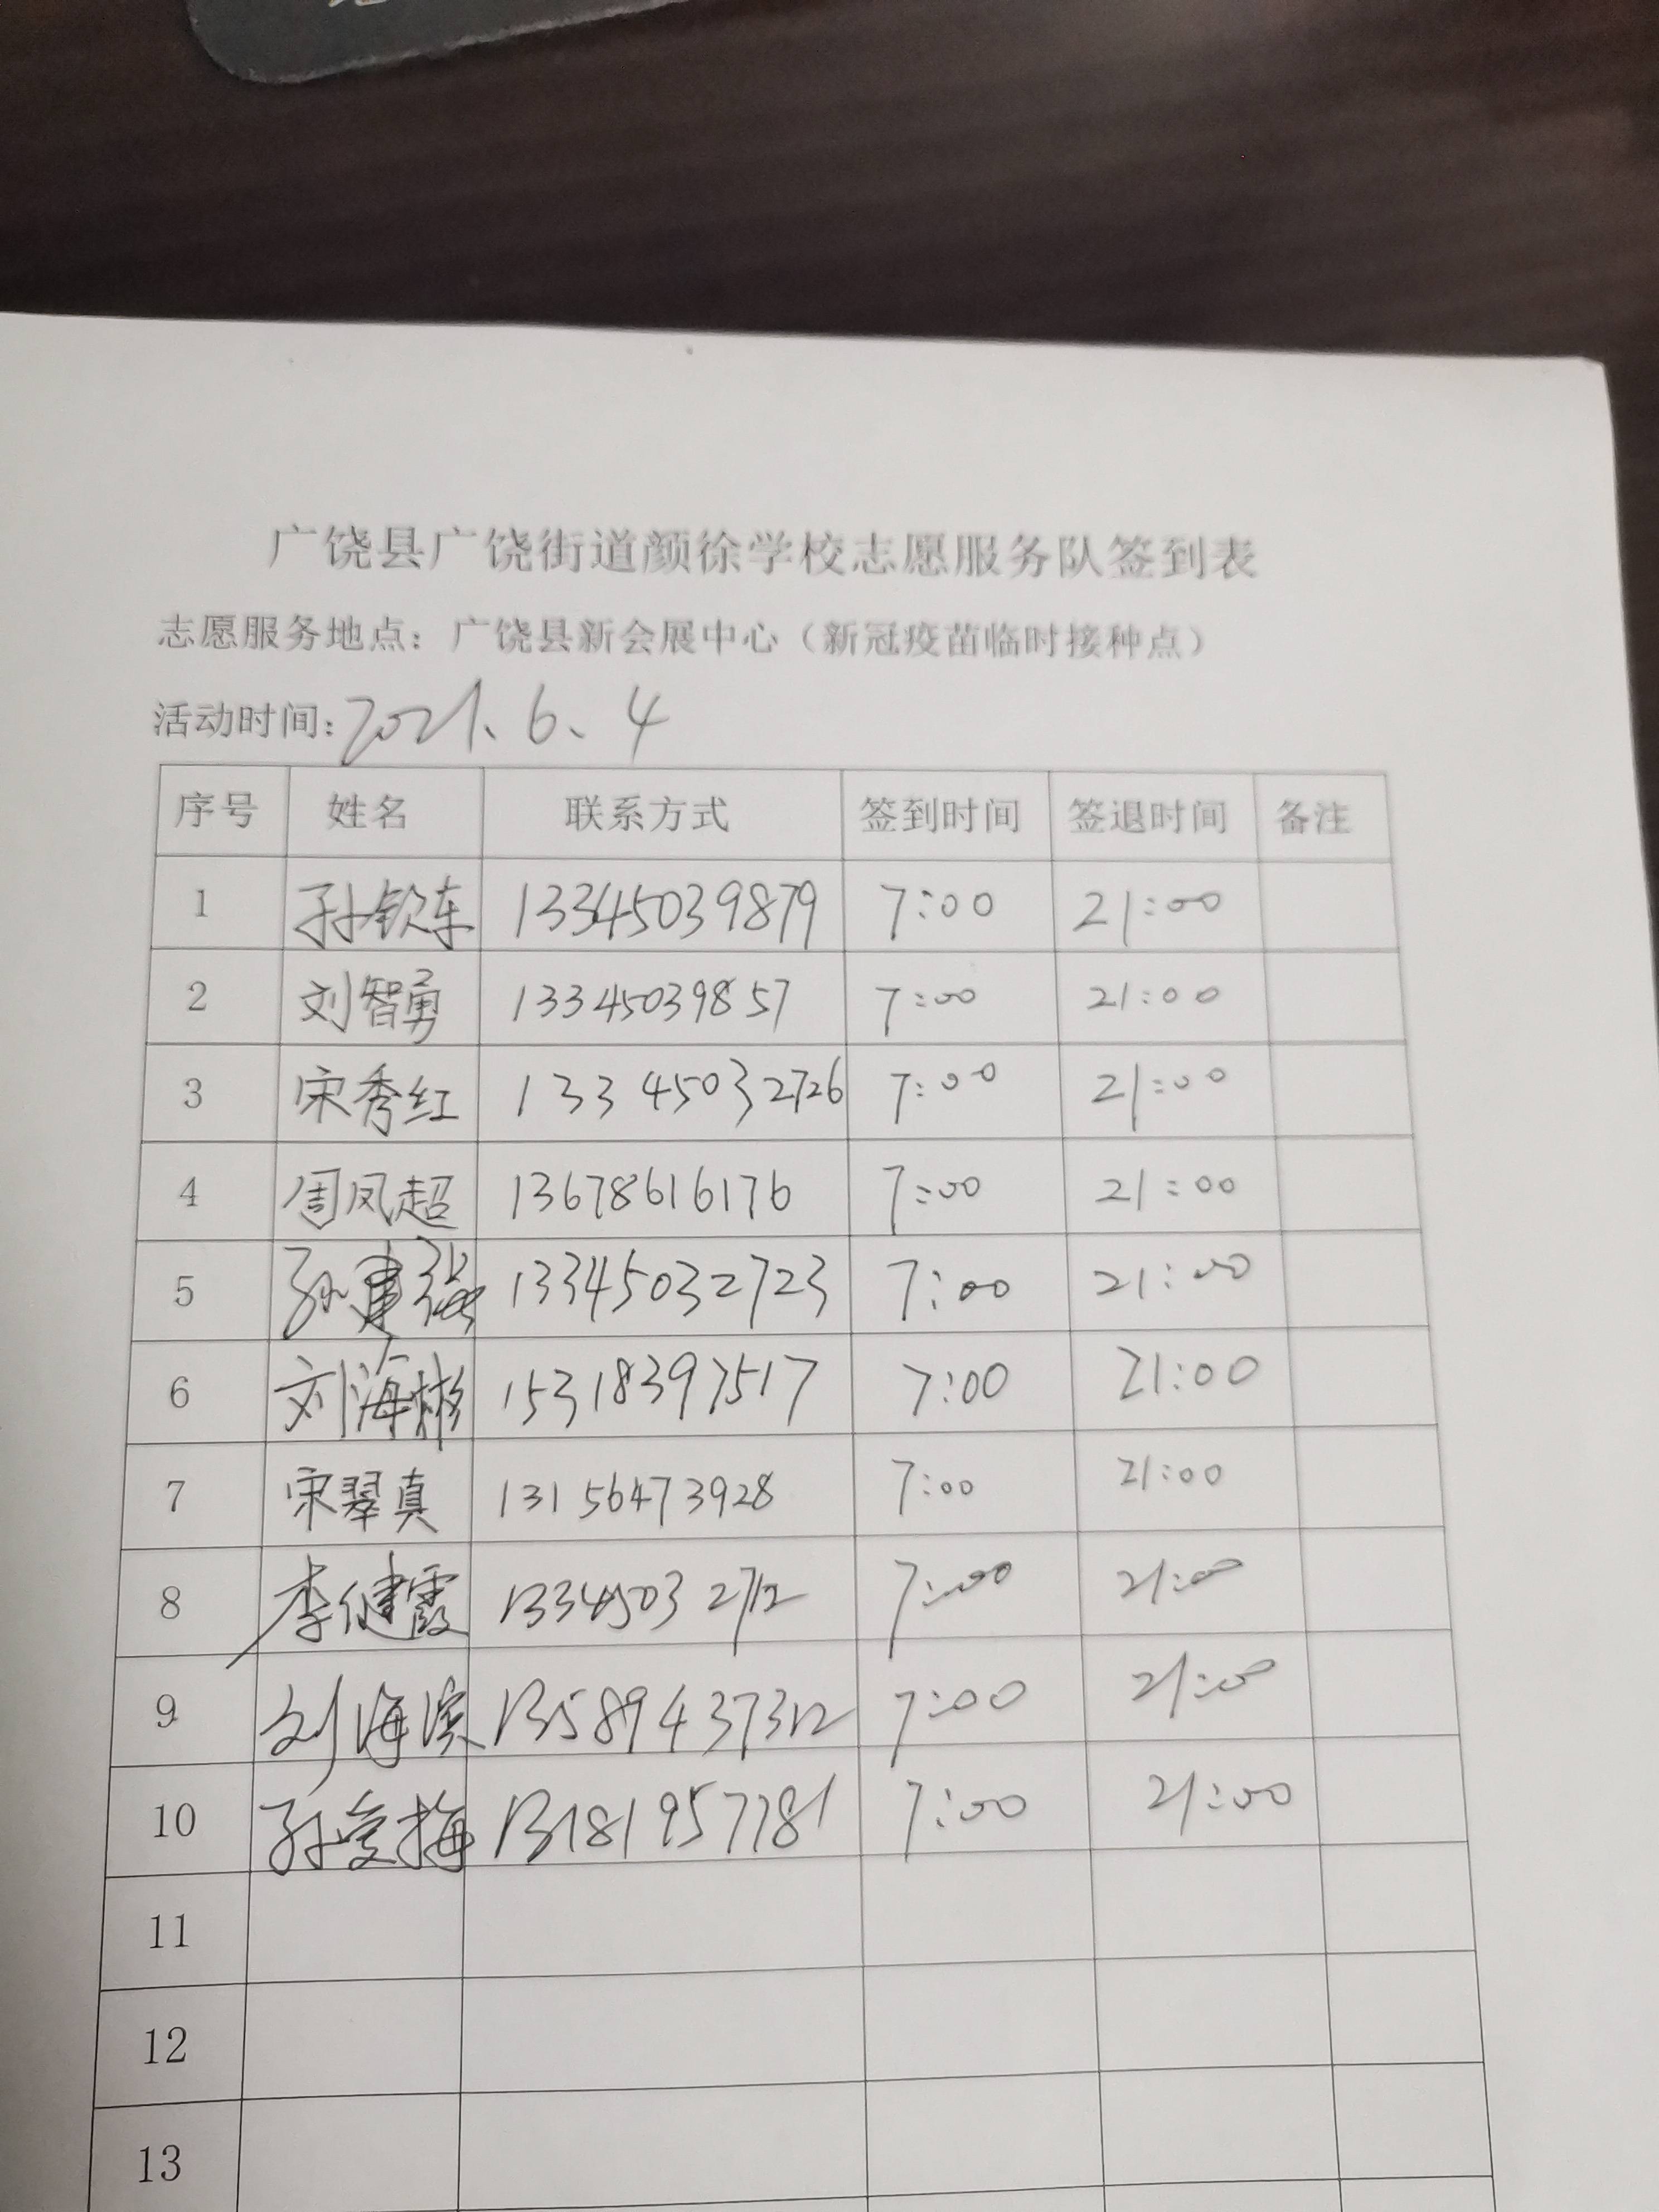 广饶县广饶街道颜徐学校志愿服务队签到表
志愿服务地点：广饶县新会展中心（新冠疫苗临时接种点）
活动时间：2021.6.4
序号 姓名 联系方式 签到时间 签退时间 备注
1 孙钦东 13345039879 7:00 21:00
2 刘智勇 13345039857 7:00 21:00
3 宋秀红 13345032726 7:00 21:00
4 周凤超 13678616176 7:00 21:00
5 孙建强 13345032723 7:00 21:00
6 刘海彬 15318397517 7:00 21:00
7 宋翠真 13156473928 7:00 21:00
8 李健霞 13345032712 7:00 21:00
9 刘海滨 13589437312 7:00 21:00
10 孙爱梅 13181957781 7:00 21:00
11
12
13